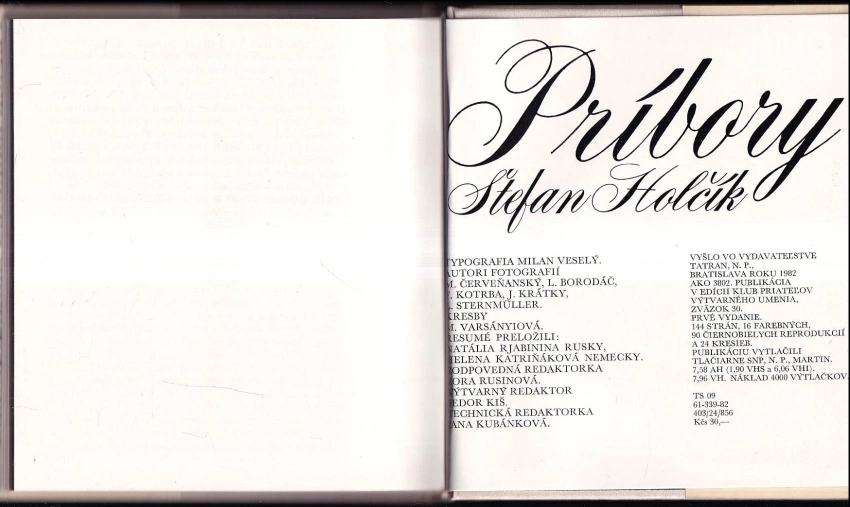 Príbory
Štefan Holčík
TYPOGRAFIA MILAN VESELÝ.
AUTORI FOTOGRAFIÍ
M. ČERVEŇANSKÝ, L. BORODÁČ,
KOTRBA, J. KRÁTKY,
STERNMÜLLER.
KRESBY
M. VARSÁNYIOVÁ.
RESUMÉ PRELOŽILI:
NATÁLIA RJABININA RUSKY,
HELENA KATRIŇÁKOVÁ NEMECKY.
ODPOVEDNÁ REDAKTORKA
RUSINOVÁ.
VÝTVARNÝ REDAKTOR
FEDOR KIŠ.
TECHNICKÁ REDAKTORKA
JANA KUBÁNKOVÁ.
VYŠLO VO VYDAVATEĽSTVE
TATRAN, N. P.,
BRATISLAVA ROKU 1982
AKO 3802. PUBLIKÁCIA
V EDÍCII KLUB PRIATEĽOV
VÝTVARNÉHO UMENIA,
ZVÄZOK 30.
PRVÉ VYDANIE.
144 STRÁN, 16 FAREBNÝCH,
90 ČIERNOBIELYCH REPRODUKCIÍ
A 24 KRESIEB.
PUBLIKÁCIU VYTLAČILI
TLAČIARNE SNP, N. P., MARTIN.
7,58 AH (1,90 VHS a 6,06 VHI).
7,96 VH. NÁKLAD 4000 VÝTLAČKOV.
TS 09
61-339-82
403/24/856
Kčs 30,—